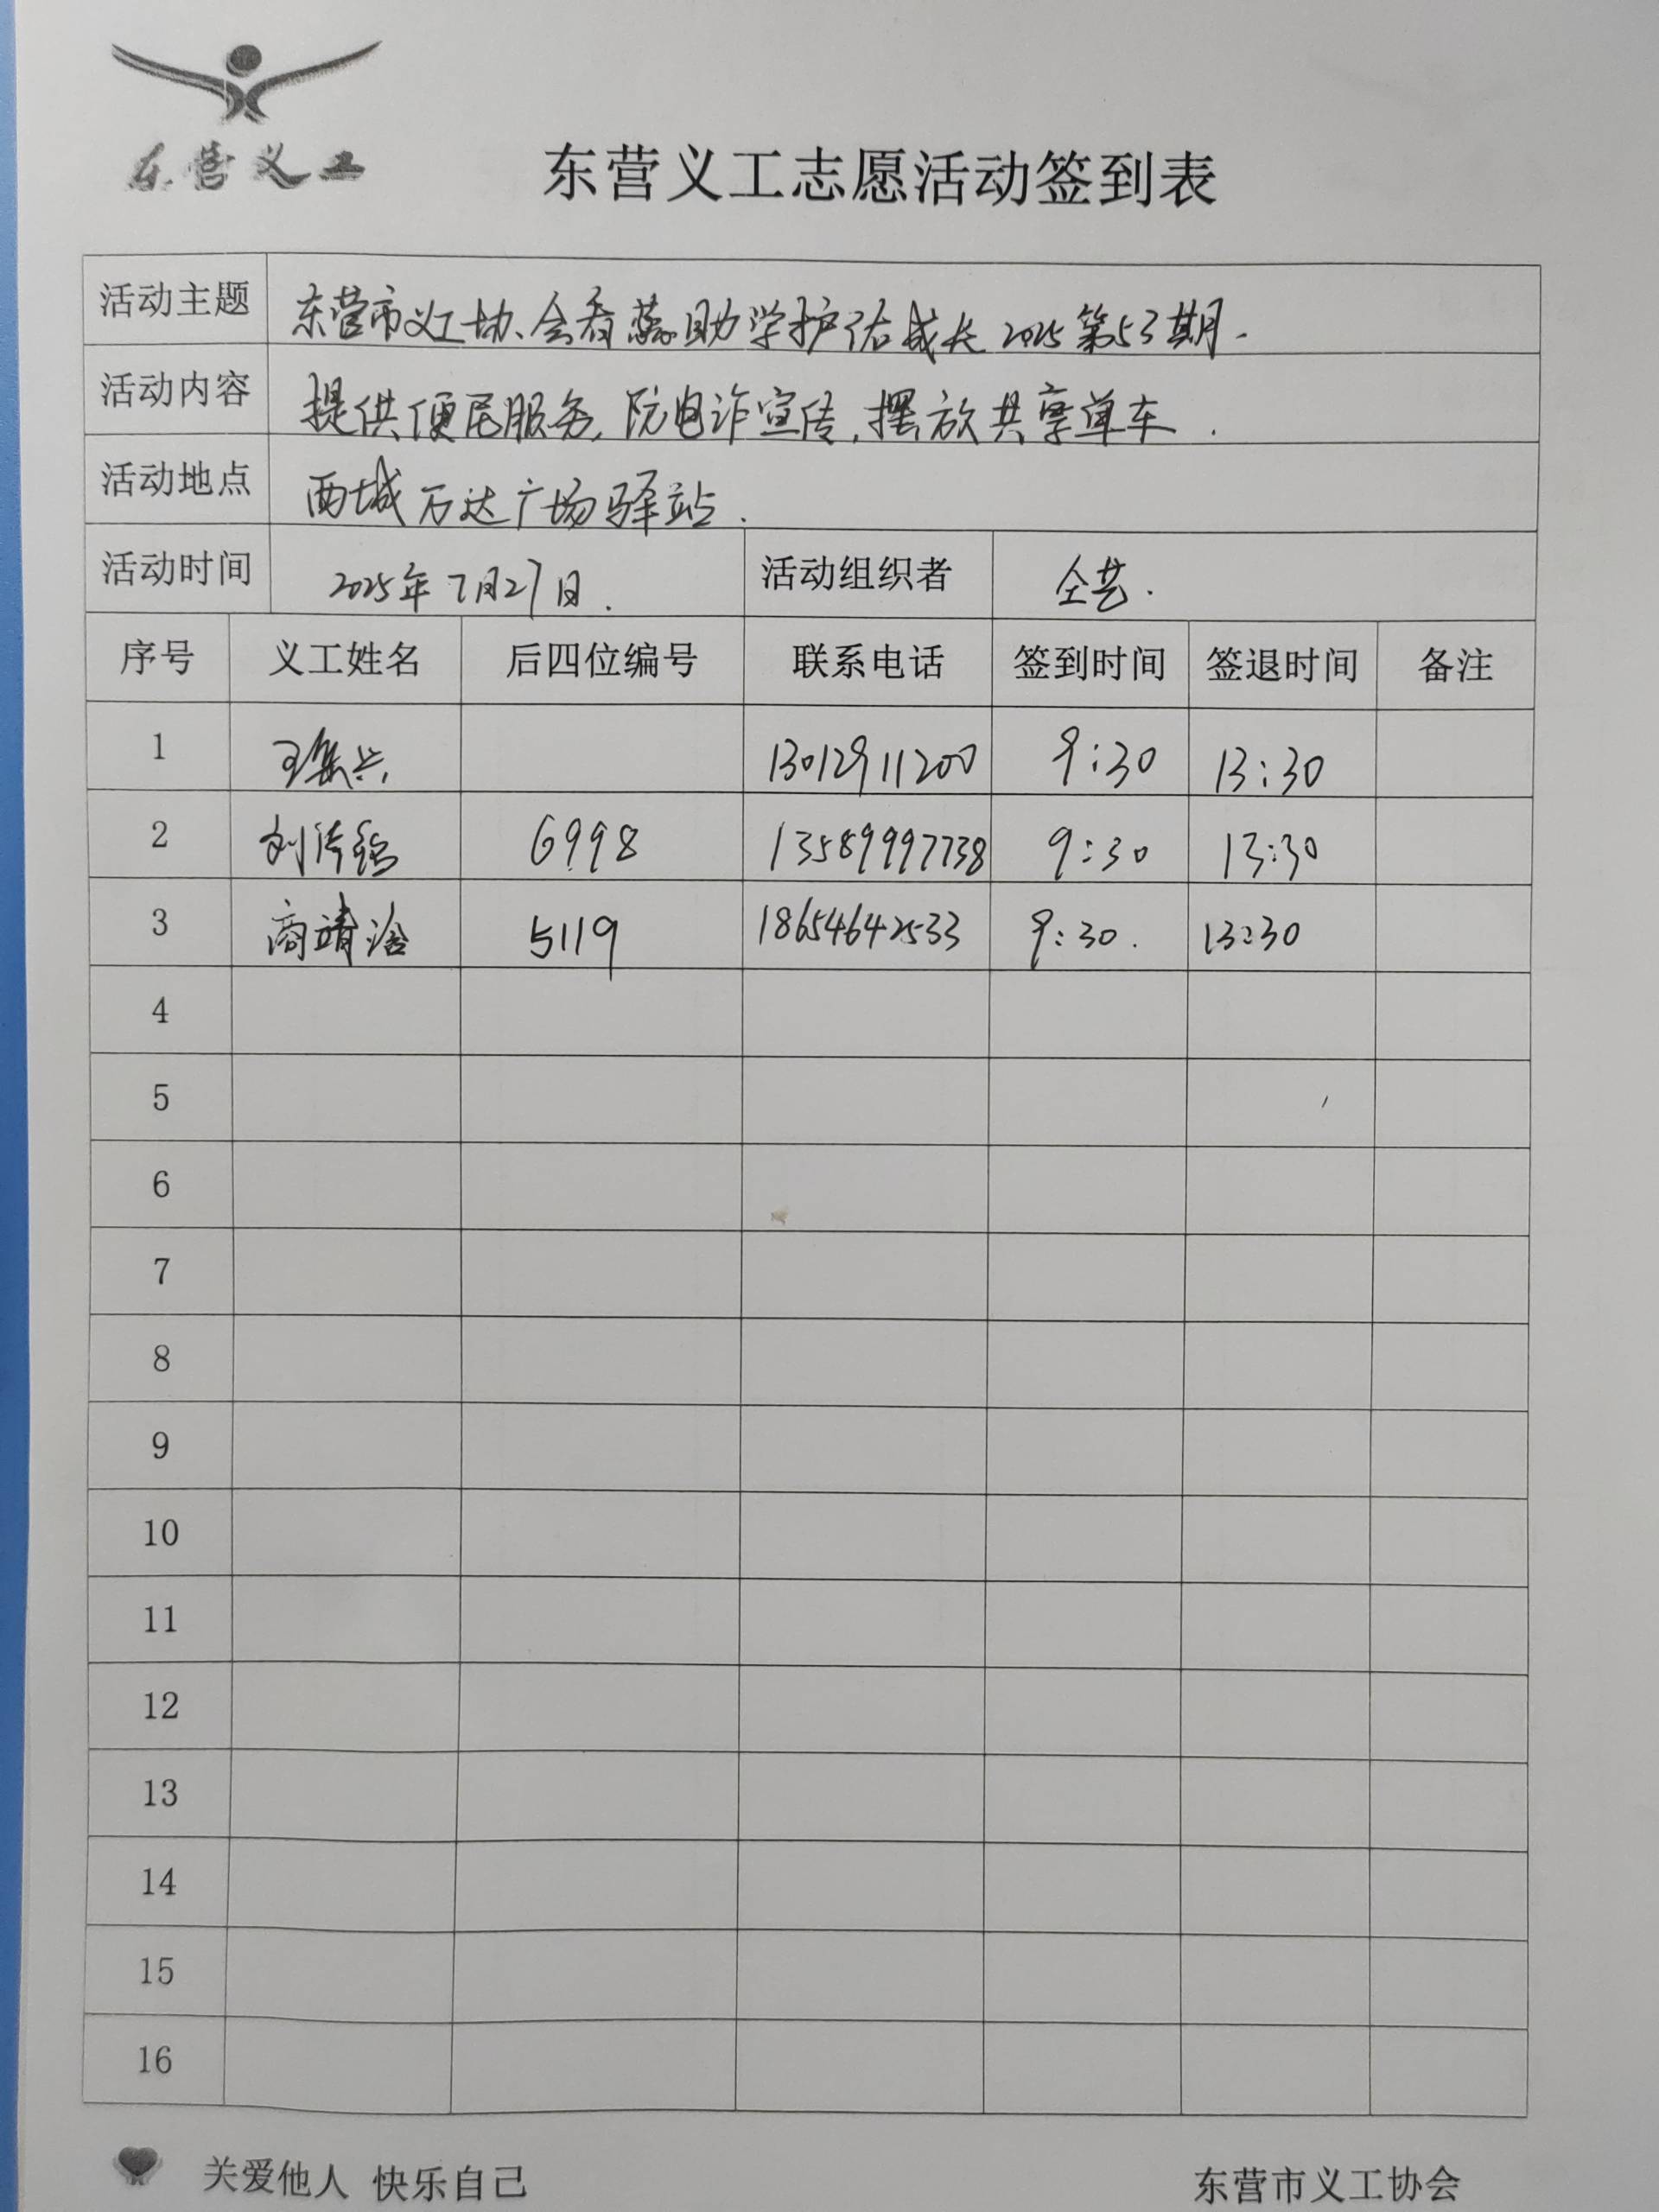 东营义工
东营义工志愿活动签到表
活动主题 东营市义工协会春蕊助学护佑成长2025第53期.
活动内容 提供便民服务,防电诈宣传,摆放共享单车.
活动地点 西城万达广场驿站.
活动时间 2025年7月27日. 活动组织者 仝艺.
序号 义工姓名 后四位编号 联系电话 签到时间 签退时间 备注
1 13012911200 9:30 13:30
2 6998 13589997738 9:30 13:30
3 商靖浛 5119 18654642533 9:30. 13:30
4
5
6
7
8
9
10
11
12
13
14
15
16
关爱他人 快乐自己 东营市义工协会